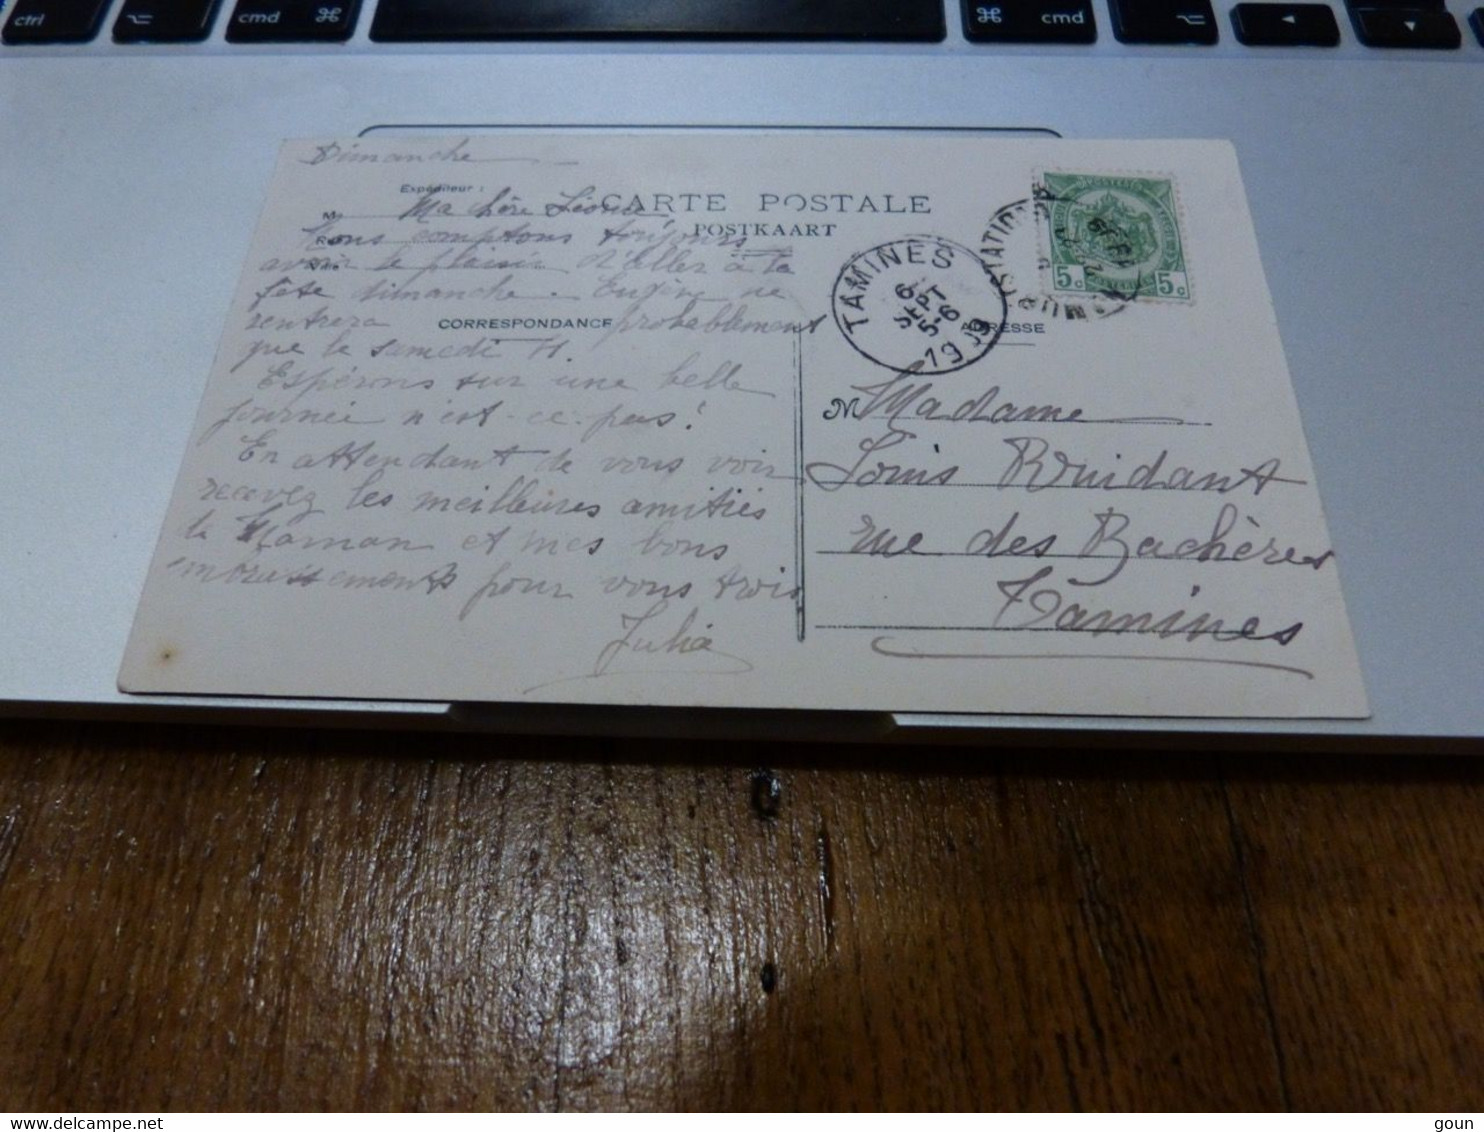 ctrl
cmd
cmd
Dimanche
Expéditeur :
CARTE POSTALE
POSTKAART
Ma chère Léonie
Nous comptons toujours
avoir le plaisir d'aller à la
fête dimanche. Eugène ne
rentrera probablement
que le samedi
Espérons sur une belle
journée n'est-ce-pas!
En attendant de vous voir
recevez les meilleures amitiés
de Maman et mes bons
embrassements pour vous trois
Julia
CORRESPONDANCE
TAMINES
6
SEPT
5-6
1909
(STATION)
5c 5c
ADRESSE
M Madame
Louis Bruidant
rue des Bachères
Tamines
goun